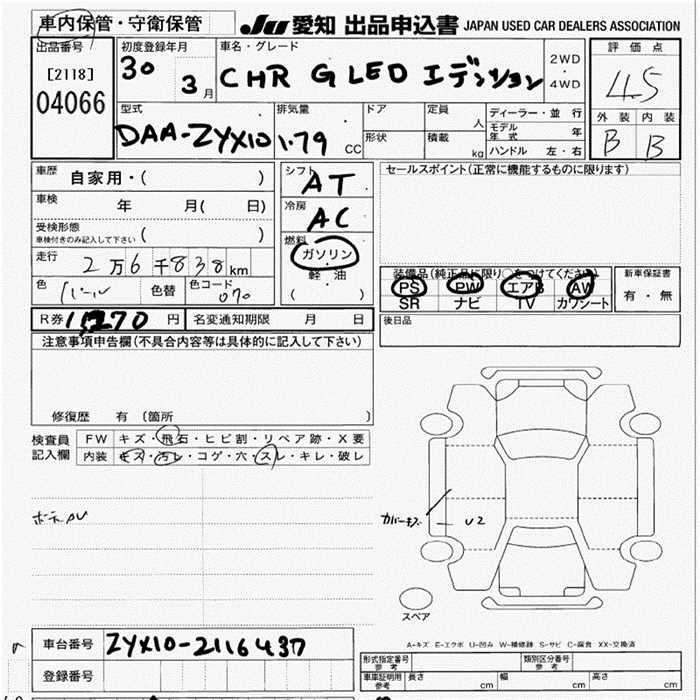 車内保管・守衛保管
JU 愛知 出品申込書 JAPAN USED CAR DEALERS ASSOCIATION
出品番号 [2118] 04066
初度登録年月 30 3月
車名・グレード CHR G LED エディション
2WD ・ 4WD
評価点 4.5
外装 内装
B B
型式 DAA-ZYX10
排気量 1.79 CC
ドア 形状
定員 人 積載 kg
ディーラー・並行
モデル年式 年
ハンドル 左・右
車歴 自家用・( )
車検 年 月( 日)
受検形態 車検付きのみ記入して下さい ( )
走行 2万6千838km
色 パール 色替 色コード 070
シフト AT
冷房 AC
燃料 ガソリン・軽油 ( )
セールスポイント(正常に機能するものに限ります)
装備品(純正品に限り○をつけてください)
PS PW エアB AW
SR ナビ TV カワシート
新車保証書 有・無
R券 11,270 円 名変通知期限 月 日
後日品
注意事項申告欄(不具合内容等は具体的に記入して下さい)
修復歴 有〔箇所 〕
検査員記入欄
FW キズ・飛石・ヒビ割・リペア跡・X要
内装 キズ・汚レ・コゲ・穴・スレ・キレ・破レ
カバーキズ U2
スペア
A-キズ E-エクボ U-凹み W-補修跡 S-サビ C-腐食 XX-交換済
車台番号 ZYX10-2116437
登録番号
形式指定番号 参考 類別区分番号 参考
車庫証明用 参考 長さ cm 幅 cm 高さ cm